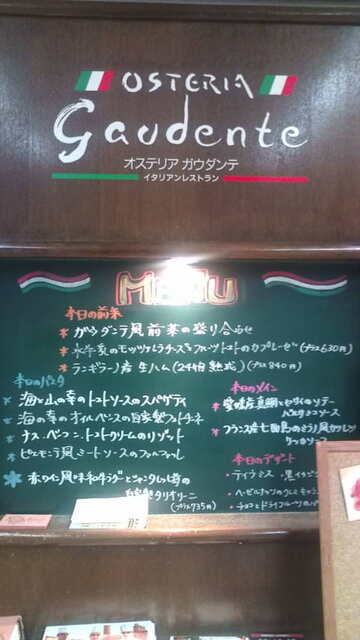 OSTERIA
Gaudente
オステリア ガウダンテ
イタリアンレストラン
Menu
本日の前菜
* ガウダンテ風 前菜の盛り合わせ
* 水牛乳のモッツァレラチーズとフルーツトマトのカプレーゼ (プラス630円)
* ランギラーノ産 生ハム (24ヵ月 熟成) (プラス840円)
本日のパスタ
* 海と山の幸のトマトソースのスパゲティ
* 海の幸のオイルベースの自家製フェトチーネ
* ナス、ベーコン、トマトクリームのリゾット
* ピエモンテ風ミートソースの
* 赤ワイン風味 和牛ラグーと
自家製タリオリーニ
(プラス735円)
本日のメイン
* 愛媛産真鯛と のソテー
ソース
* フランス産七面鳥のミラノ風カツレツ
ソース
本日のデザート
・ティラミス
・ヘーゼルナッツの
・ とドライフルーツの